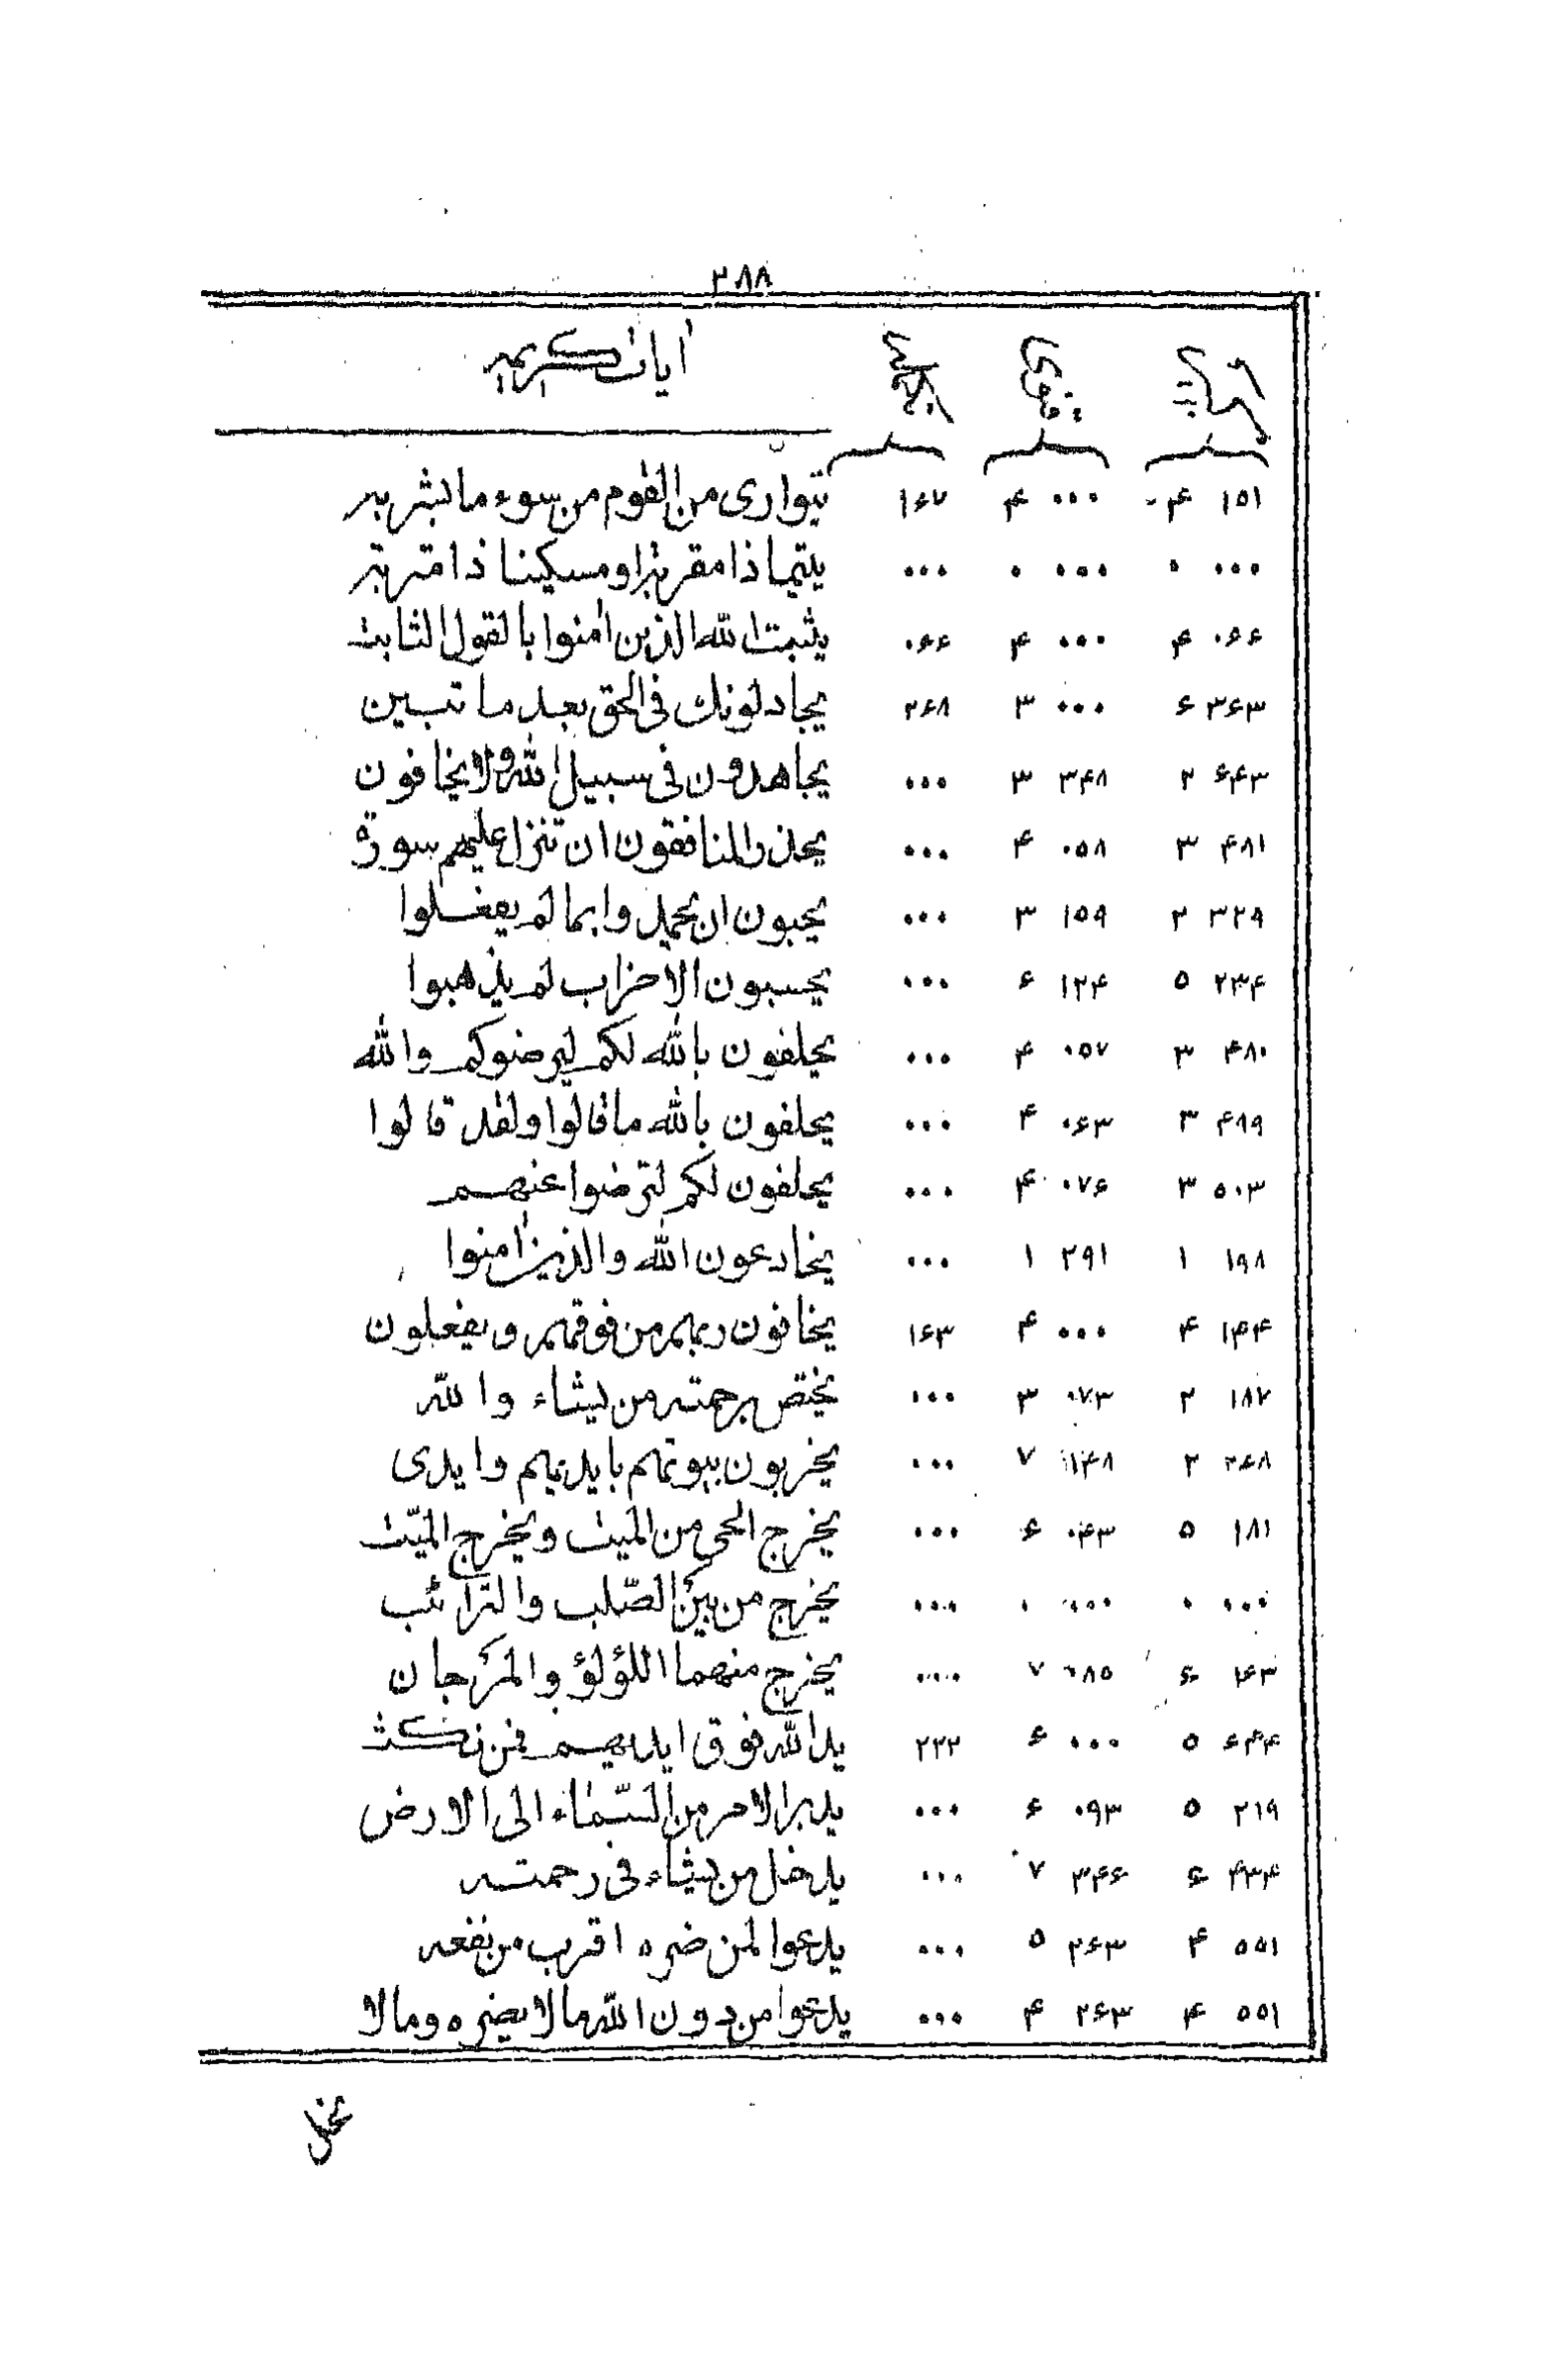 ۲۸۸
آیات کریمه
۱۵۱ ۴ ۰۰۰ ۴ ۱۶۷ یتواری من القوم من سوء ما بشر به
۰۰۰ ۰ ۰۰۰ ۰ ۰۰۰ یتیما ذا مقربة او مسکینا ذا متربة
۰۶۶ ۴ ۰۰۰ ۴ ۰۶۶ یثبت الله الذین اٰمنوا بالقول الثابت
۳۶۳ ۶ ۰۰۰ ۳ ۲۶۸ یجادلونک فی الحق بعد ما تبین
۶۴۳ ۲ ۳۴۸ ۳ ۰۰۰ یجاهدون فی سبیل الله ولا یخافون
۴۸۱ ۳ ۰۵۸ ۴ ۰۰۰ یحذر المنافقون ان تنزل علیهم سورة
۳۲۹ ۲ ۱۵۹ ۳ ۰۰۰ یحبون ان یحمدوا بما لم یفعلوا
۲۳۴ ۵ ۱۲۴ ۶ ۰۰۰ یحسبون الاحزاب لم یذهبوا
۴۸۰ ۳ ۰۵۷ ۴ ۰۰۰ یحلفون بالله لکم لیرضوکم والله
۴۸۹ ۳ ۰۶۳ ۴ ۰۰۰ یحلفون بالله ما قالوا ولقد قالوا
۵۰۳ ۳ ۰۷۶ ۴ ۰۰۰ یحلفون لکم لترضوا عنهم
۱۹۸ ۱ ۲۹۱ ۱ ۰۰۰ یخادعون الله والذین اٰمنوا
۱۴۴ ۴ ۰۰۰ ۴ ۱۶۳ یخافون ربهم من فوقهم ویفعلون
۱۸۷ ۲ ۰۷۳ ۳ ۰۰۰ یختص برحمته من یشاء والله
۲۶۸ ۲ ۱۴۸ ۷ ۰۰۰ یخربون بیوتهم بایدیهم وایدی
۱۸۱ ۵ ۰۴۳ ۶ ۰۰۰ یخرج الحی من المیت ویخرج المیّت
۰۰۰ ۰ ۰۰۰ ۰ ۰۰۰ یخرج من بین الصّلب والترائب
۱۶۳ ۶ ۰۸۵ ۷ ۰۰۰ یخرج منهما اللؤلؤ والمرجان
۶۴۴ ۵ ۰۰۰ ۶ ۲۲۲ ید الله فوق ایدیهم فمن نکث
۲۱۹ ۵ ۰۹۳ ۶ ۰۰۰ یدبر الامر من السّماء الی الارض
۴۳۴ ۶ ۳۴۶ ۷ ۰۰۰ یدخل من یشاء فی رحمته
۵۵۱ ۴ ۲۶۳ ۵ ۰۰۰ یدعوا لمن ضره اقرب من نفعه
۵۵۱ ۴ ۲۶۳ ۴ ۰۰۰ یدعوا من دون الله ما لا یضره وما لا